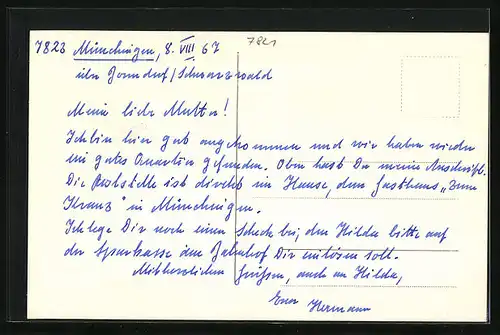 7821
7823 Münchingen, 8. VIII 67
über Bonndorf/Schwarzwald
Meine liebe Mutter!
Ich bin hier gut angekommen und wir haben wieder
ein gutes Quartier gefunden. Oben hast Du meine Anschrift.
Die Poststelle ist direkt im Hause, dem Gasthaus „Zum
Kranz" in Münchingen.
Ich lege Dir noch einen Scheck bei, den Hilda bitte auf
der Sparkasse am Bahnhof Dir einlösen soll.
Mit herzlichen Grüßen, auch an Hilda,
Euer Hermann